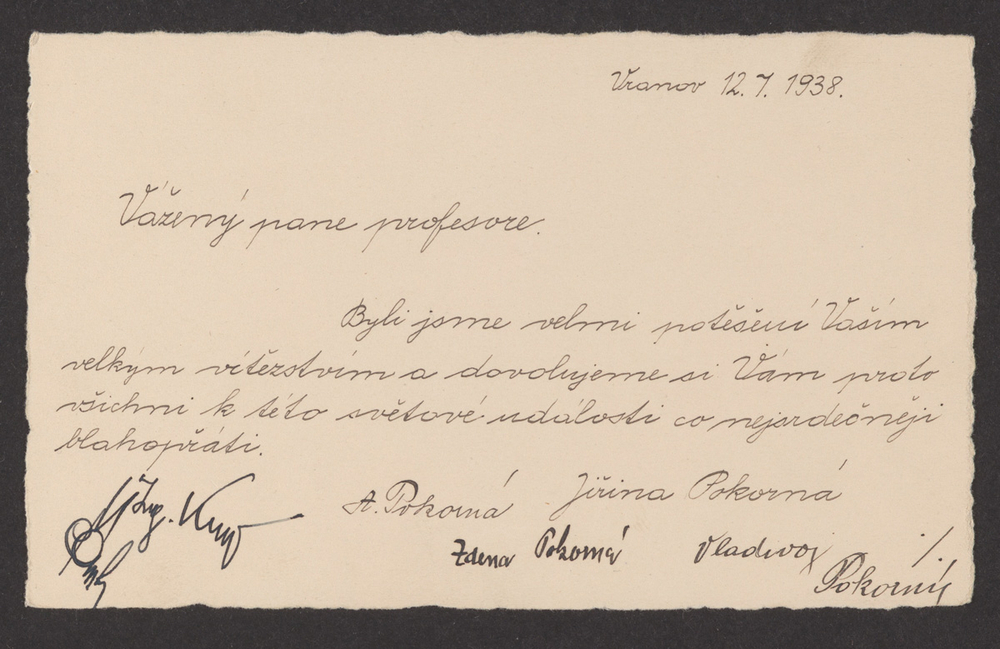 Vranov 12. 7. 1938.
Vážený pane profesore.
Byli jsme velmi potěšení Vaším
velkým vítězstvím a dovolujeme si Vám proto
všichni k této světové události co nejsrdečněji
blahopřáti.
Ing.
A. Pokorná Jiřina Pokorná
Zdena Pokorná Vladivoj ./.
Pokorný